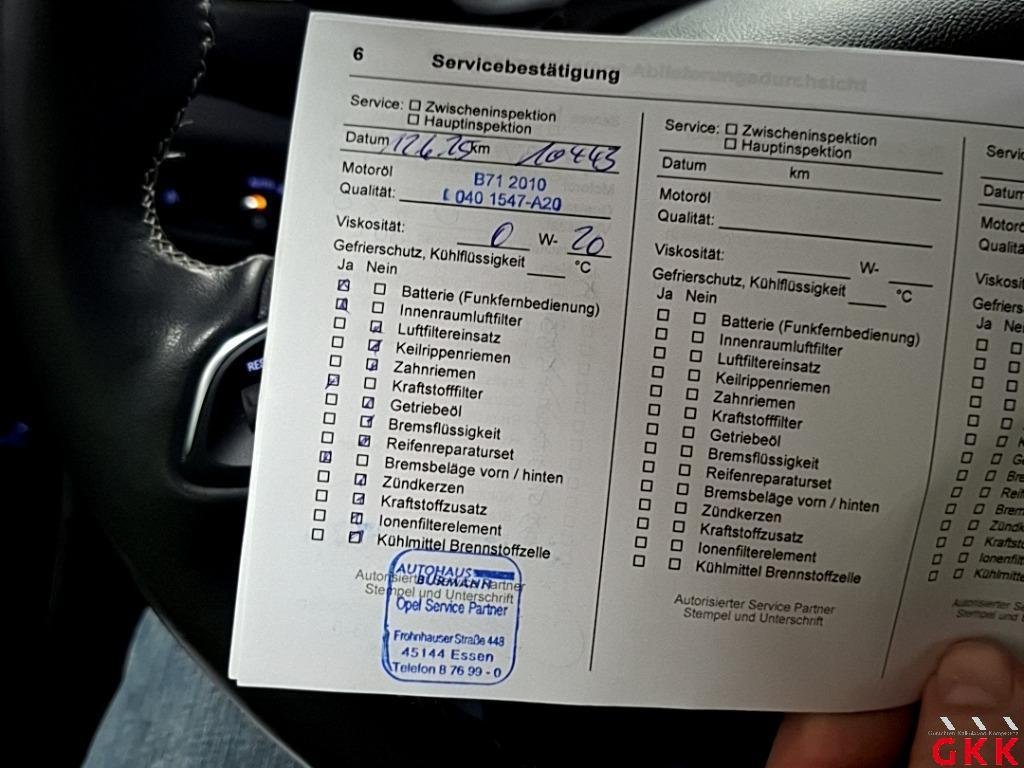 6 Servicebestätigung
Service: Zwischeninspektion
Hauptinspektion
Datum 12.6.25 km 10443
Motoröl B71 2010
Qualität: 040 1547-A20
Viskosität: 0 W- 20
Gefrierschutz, Kühlflüssigkeit °C
Ja Nein
Batterie (Funkfernbedienung)
Innenraumluftfilter
Luftfiltereinsatz
Keilrippenriemen
Zahnriemen
Kraftstofffilter
Getriebeöl
Bremsflüssigkeit
Reifenreparaturset
Bremsbeläge vorn / hinten
Zündkerzen
Kraftstoffzusatz
Ionenfilterelement
Kühlmittel Brennstoffzelle
Autorisierter Service Partner
Stempel und Unterschrift
AUTOHAUS
BURMANN
Opel Service Partner
Frohnhauser Straße 448
45144 Essen
Telefon 8 76 99 - 0
Service: Zwischeninspektion
Hauptinspektion
Datum km
Motoröl
Qualität:
Viskosität: W-
Gefrierschutz, Kühlflüssigkeit °C
Ja Nein
Batterie (Funkfernbedienung)
Innenraumluftfilter
Luftfiltereinsatz
Keilrippenriemen
Zahnriemen
Kraftstofffilter
Getriebeöl
Bremsflüssigkeit
Reifenreparaturset
Bremsbeläge vorn / hinten
Zündkerzen
Kraftstoffzusatz
Ionenfilterelement
Kühlmittel Brennstoffzelle
Autorisierter Service Partner
Stempel und Unterschrift
Datum
Viskosi
Gefriers
Ja Ne
GKK